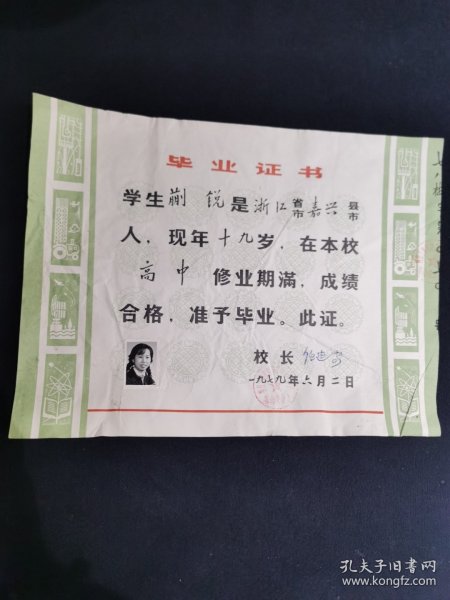 毕业证书
学生蒯 锐是浙江省市嘉兴县市
人，现年十九岁，在本校
高中 修业期满，成绩
合格，准予毕业。此证。
校长
一九七九年六月二日
孔夫子旧书网
www.kongfz.com